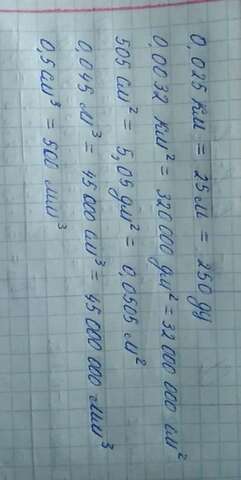 0,025 км = 25 м = 250 дц
0,0032 км² = 320 000 дм² = 32 000 000 см²
505 см² = 5,05 дм² = 0,0505 м²
0,045 м³ = 45 000 см³ = 45 000 000 мм³
0,5 см³ = 500 мм³